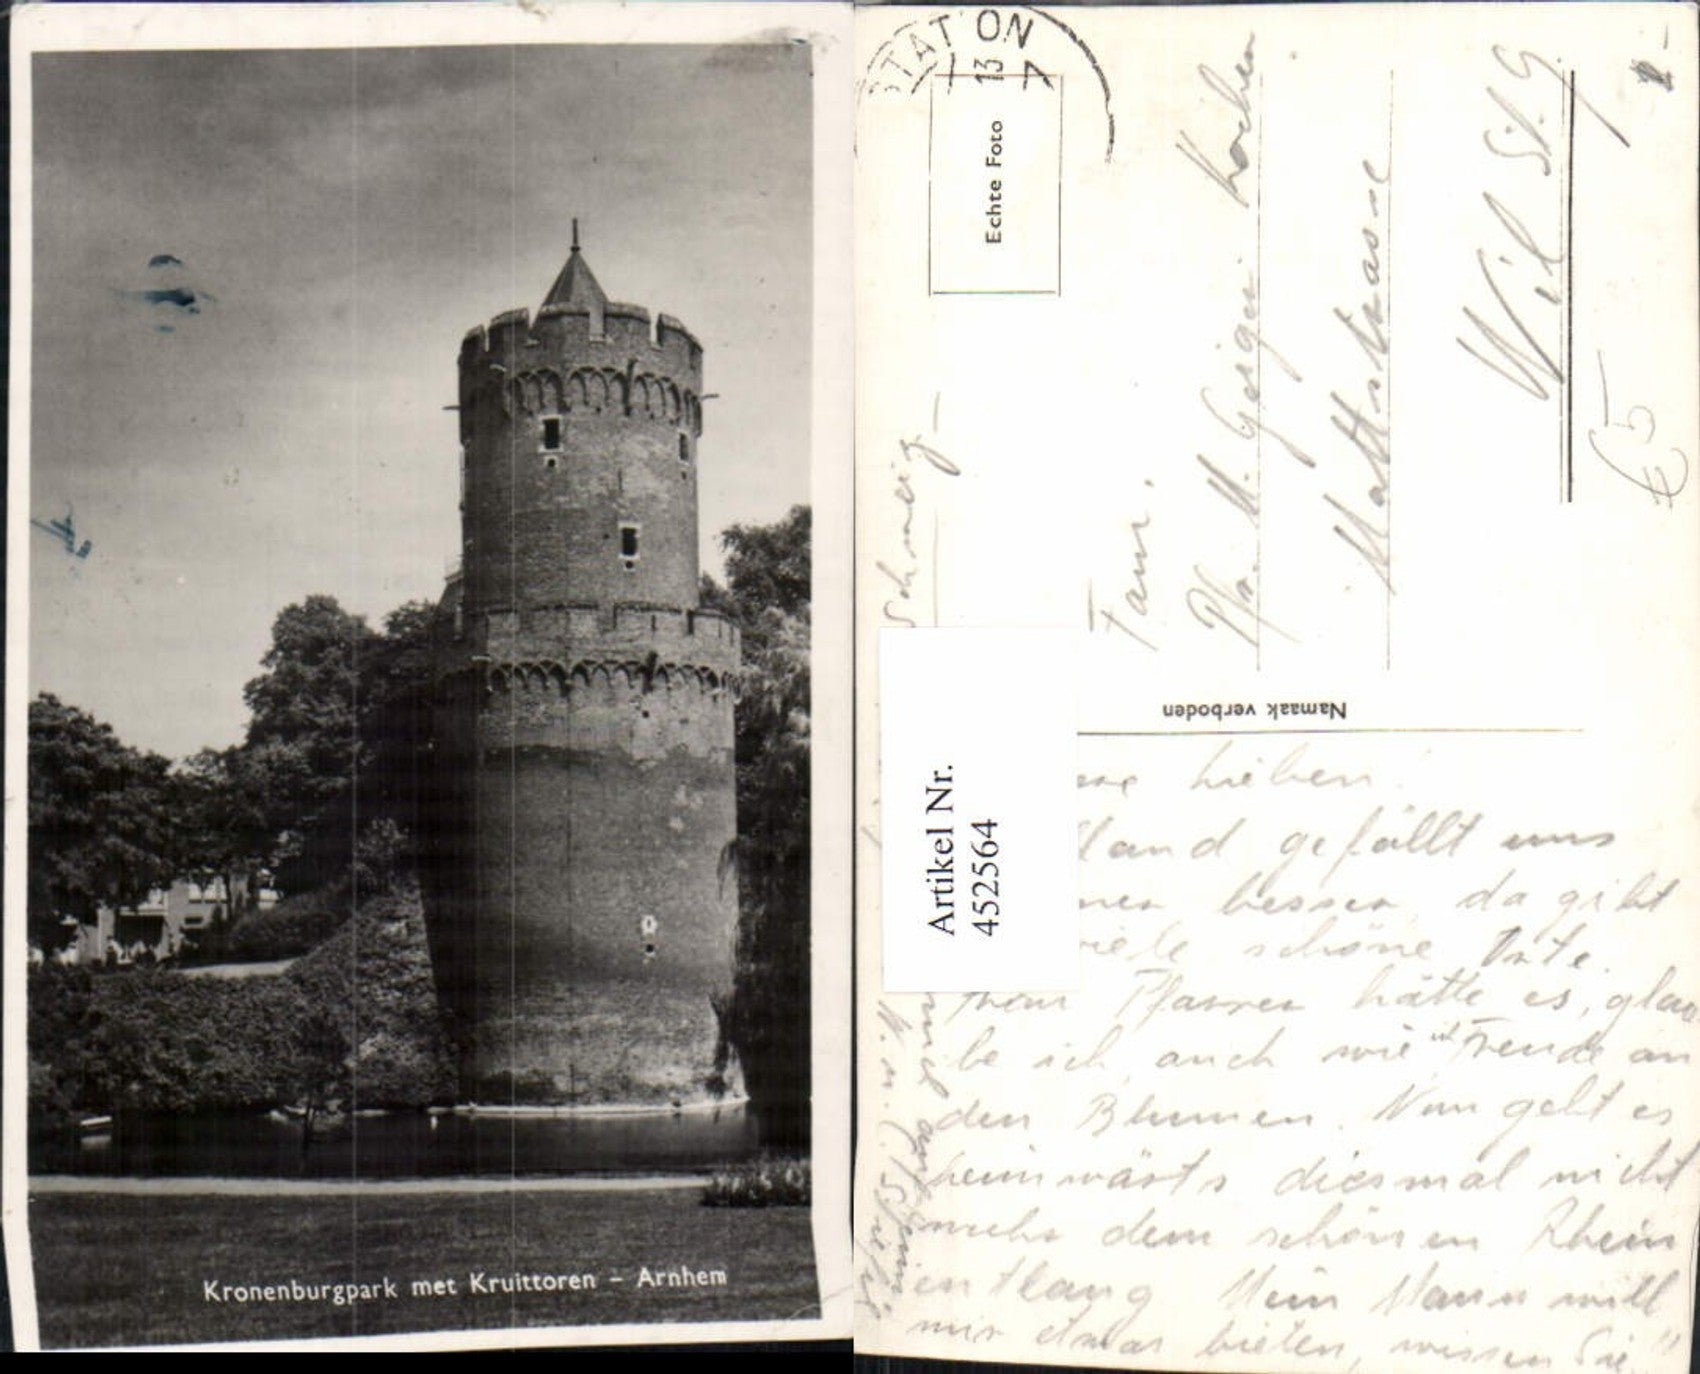 Kronenburgpark met Kruittoren – Arnhem
STATION
13 7
Echte Foto
Fam.
Pfr. M. Gorgen Kochen
Mattstrasse
Wil St. G
Schweiz
€5
Namaak verboden
Artikel Nr.
452564
Lieben!
land gefällt uns
besser da gibt
viele schöne Orte.
Pfarrer hätte es, glau
be ich, auch wie ich Freude an
den Blumen. Nun geht es
heimwärts diesmal nicht
mehr dem schönen Rhein
entlang Mein Mann will
mir etwas bieten, wissen Sie"